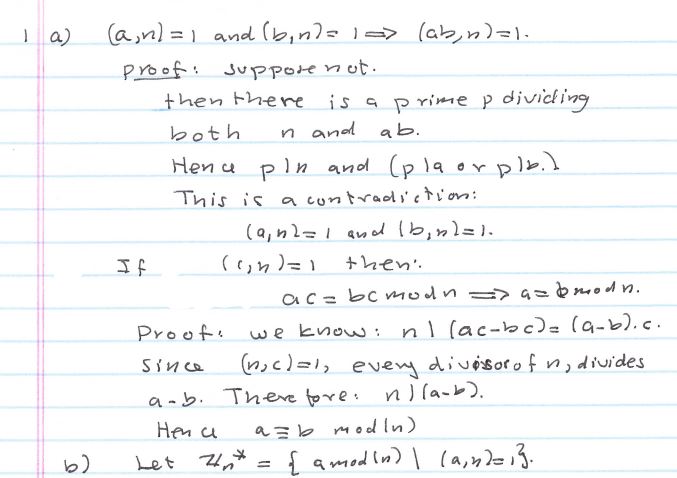 1 a) (a,n)=1 and (b,n)=1 ⟹ (ab,n)=1.
proof: suppose not.
then there is a prime p dividing
both n and ab.
Hence p|n and (p|a or p|b.)
This is a contradiction:
(a,n)=1 and (b,n)=1.
If (c,n)=1 then:
ac = bc mod n ⟹ a = b mod n.
Proof: we know: n | (ac-bc) = (a-b).c.
since (n,c)=1, every divisor of n, divides
a-b. Therefore: n|(a-b).
Hence a ≡ b mod(n)
b) Let ℤn* = { a mod(n) | (a,n)=1}.